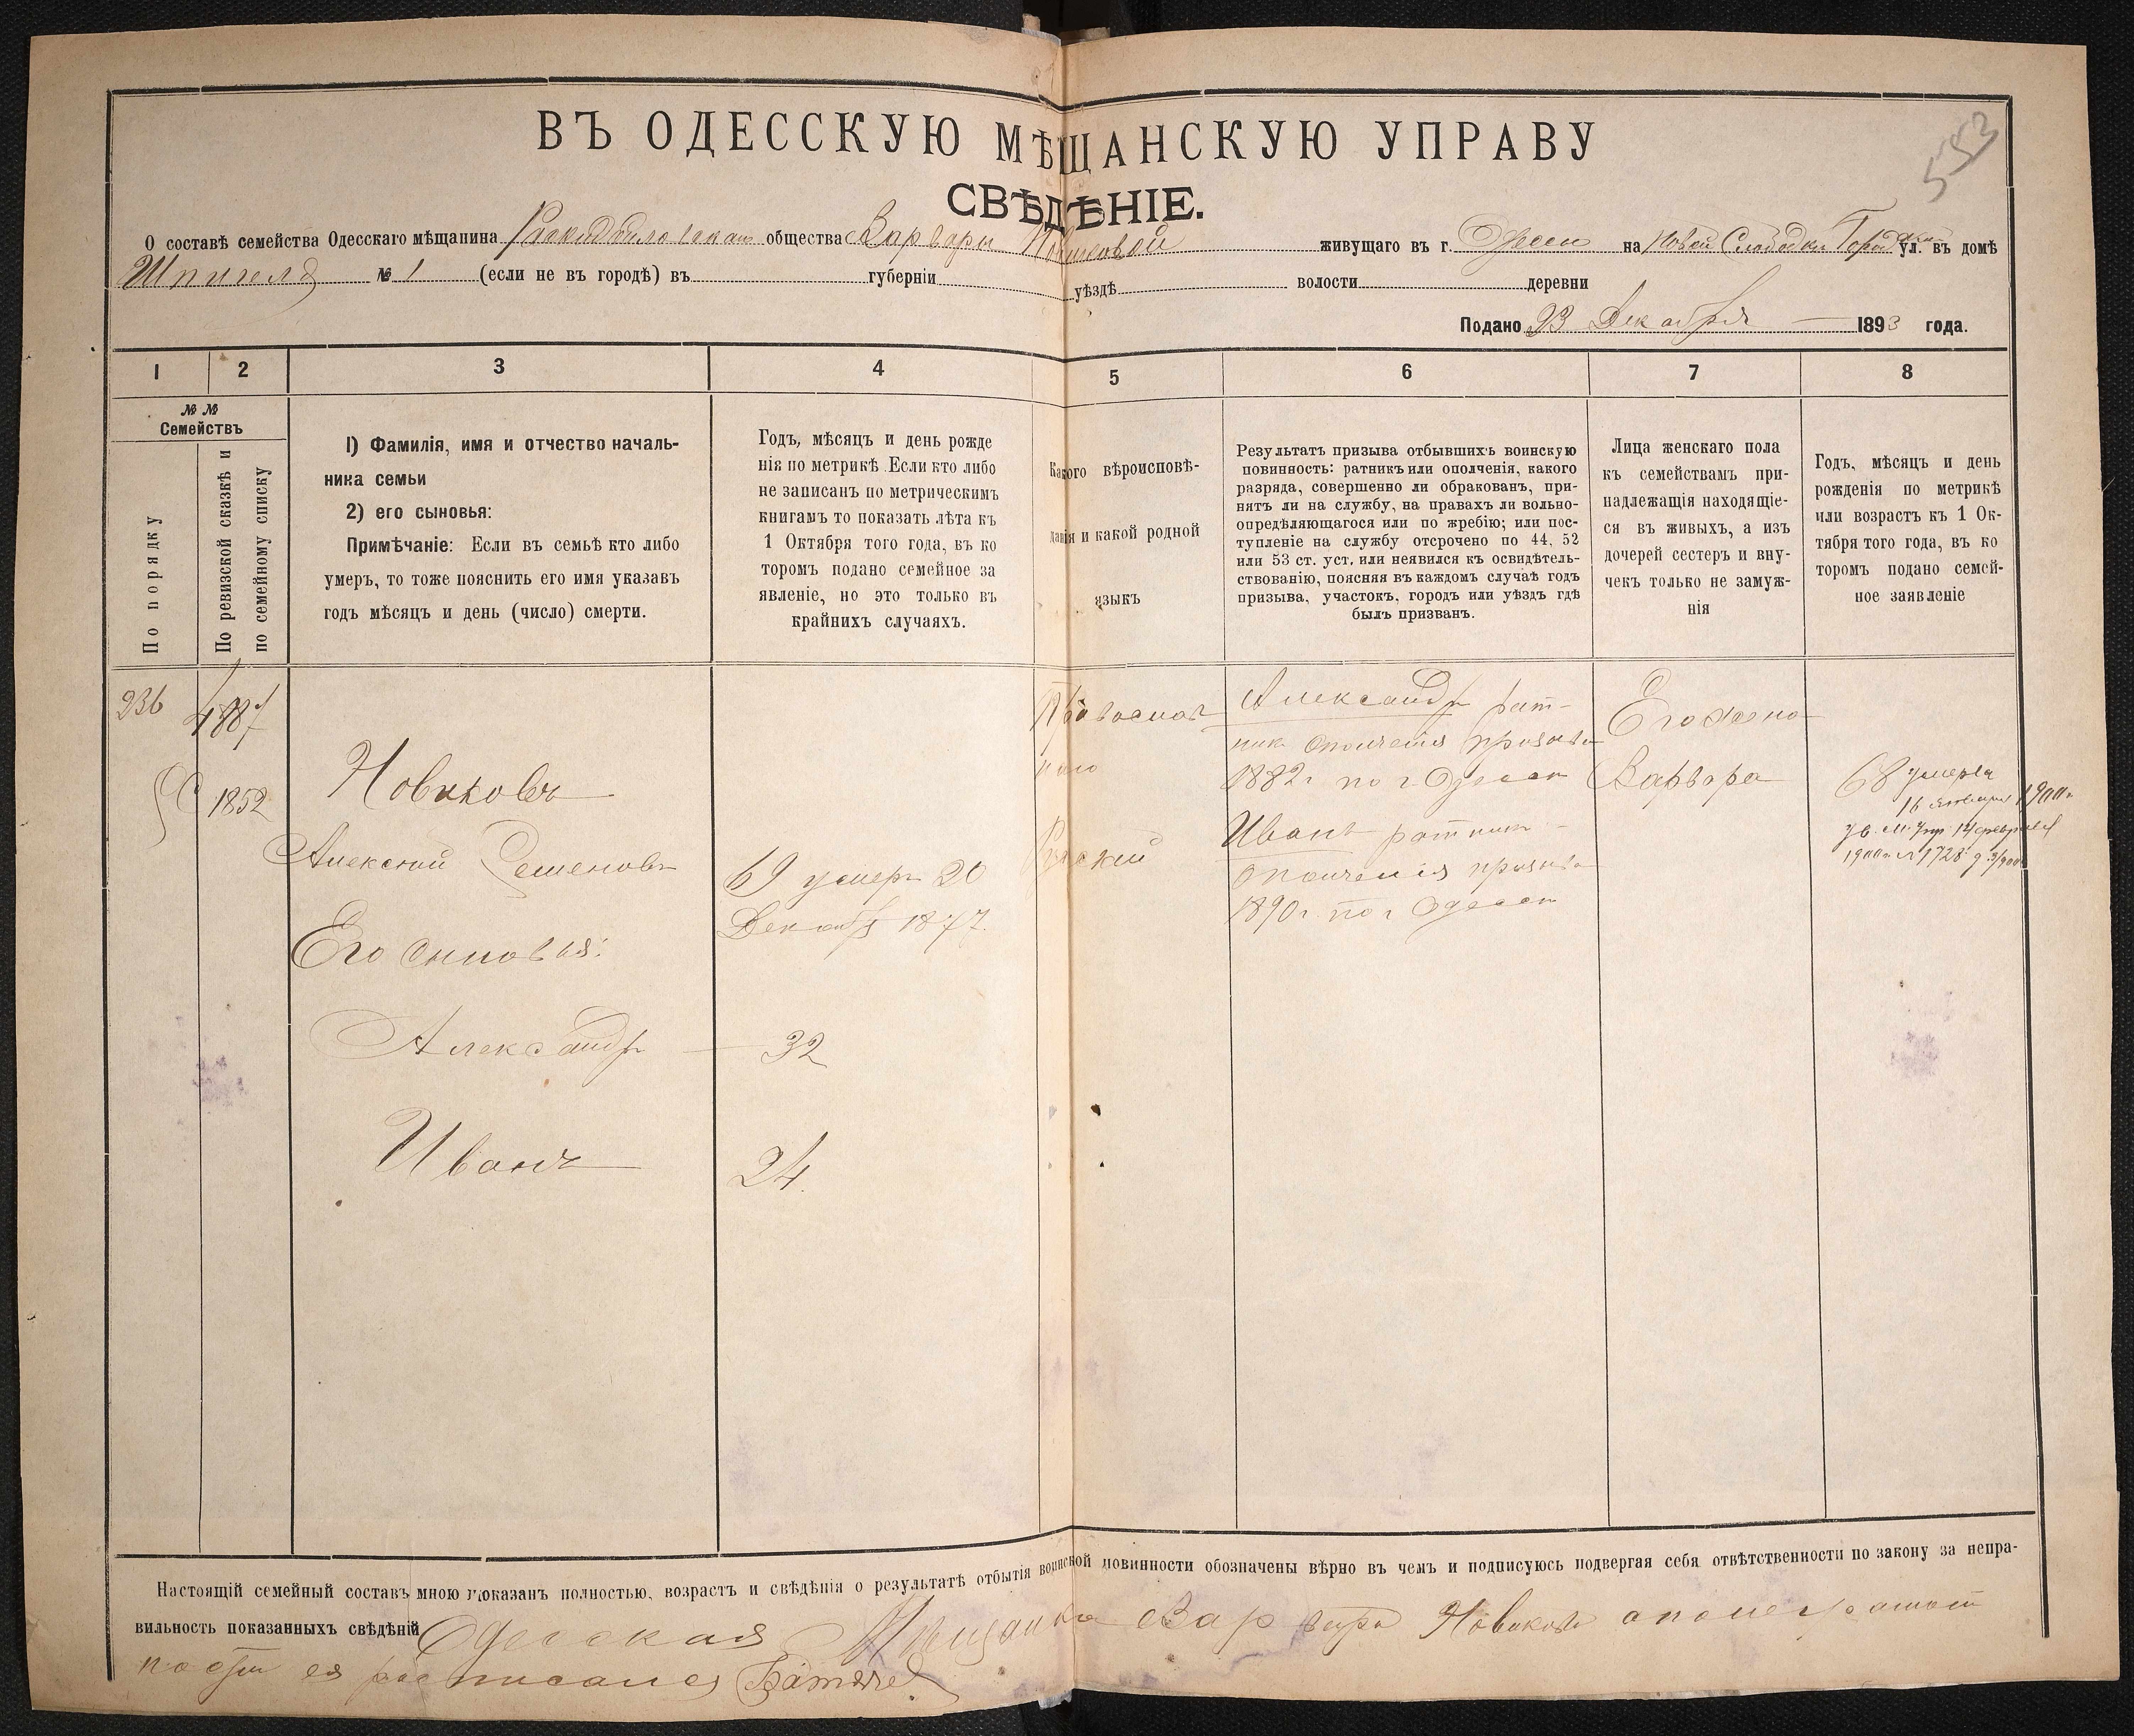 553
ВЪ ОДЕССКУЮ МѢЩАНСКУЮ УПРАВУ
СВѢДѢНІЕ.
О составѣ семейства Одесскаго мѣщанина общества Варвары Новиковой живущаго въ г. Одессы на Новой Слободки ул. въ домѣ
Шпигеля № 1 (если не въ городѣ) въ губерніи уѣздѣ волости деревни
Подано 23 Декабря 1893 года.
1 2 3 4 5 6 7 8
№ № Семействъ
По порядку
По ревизской сказкѣ и
по семейному списку
1) Фамилія, имя и отчество началь-
ника семьи
2) его сыновья:
Примѣчаніе: Если въ семьѣ кто либо
умеръ, то тоже пояснить его имя указавъ
годъ мѣсяцъ и день (число) смерти.
Годъ, мѣсяцъ и день рожде
нія по метрикѣ. Если кто либо
не записанъ по метрическимъ
книгамъ то показать лѣта къ
1 Октября того года, въ ко
торомъ подано семейное за
явленіе, но это только въ
крайнихъ случаяхъ.
Какого вѣроисповѣ-
данія и какой родной
языкъ
Результатъ призыва отбывшихъ воинскую
повинность: ратникъ или ополченія, какого
разряда, совершенно ли обракованъ, при-
нятъ ли на службу, на правахъ ли вольно-
опредѣляющагося или по жребію; или пос-
тупленіе на службу отсрочено по 44, 52
или 53 ст. уст. или неявился къ освидѣтель-
ствованію, поясняя въ каждомъ случаѣ годъ
призыва, участокъ, городъ или уѣздъ гдѣ
былъ призванъ.
Лица женскаго пола
къ семействамъ при-
надлежащія находящіе-
ся въ живыхъ, а изъ
дочерей сестеръ и вну-
чекъ только не замуж-
нія
Годъ, мѣсяцъ и день
рожденія по метрикѣ
или возрастъ къ 1 Ок-
тября того года, въ ко
торомъ подано семей-
ное заявленіе
236
1852
Новиковъ
Алексѣй Семеновъ
Его сыновья:
Александръ
Иванъ
69 умеръ 20
Декабря 1877.
32
24.
Православ
наго
Русскій
Александръ рат-
никъ ополченія призыва
1882 г. по г Одессѣ
Иванъ ратникъ
ополченія призыва
1890 г. по г Одессѣ
Его жена
Варвара
68 умерла
16 января 1900 г.
Настоящій семейный составъ мною показанъ полностью, возрастъ и свѣдѣнія о результатѣ отбытія воинской повинности обозначены вѣрно въ чемъ и подписуюсь подвергая себя отвѣтственности по закону за непра-
вильность показанныхъ свѣдѣній Одесская Мѣщанка Варвара Новикова а по неграмот
ности ея росписался